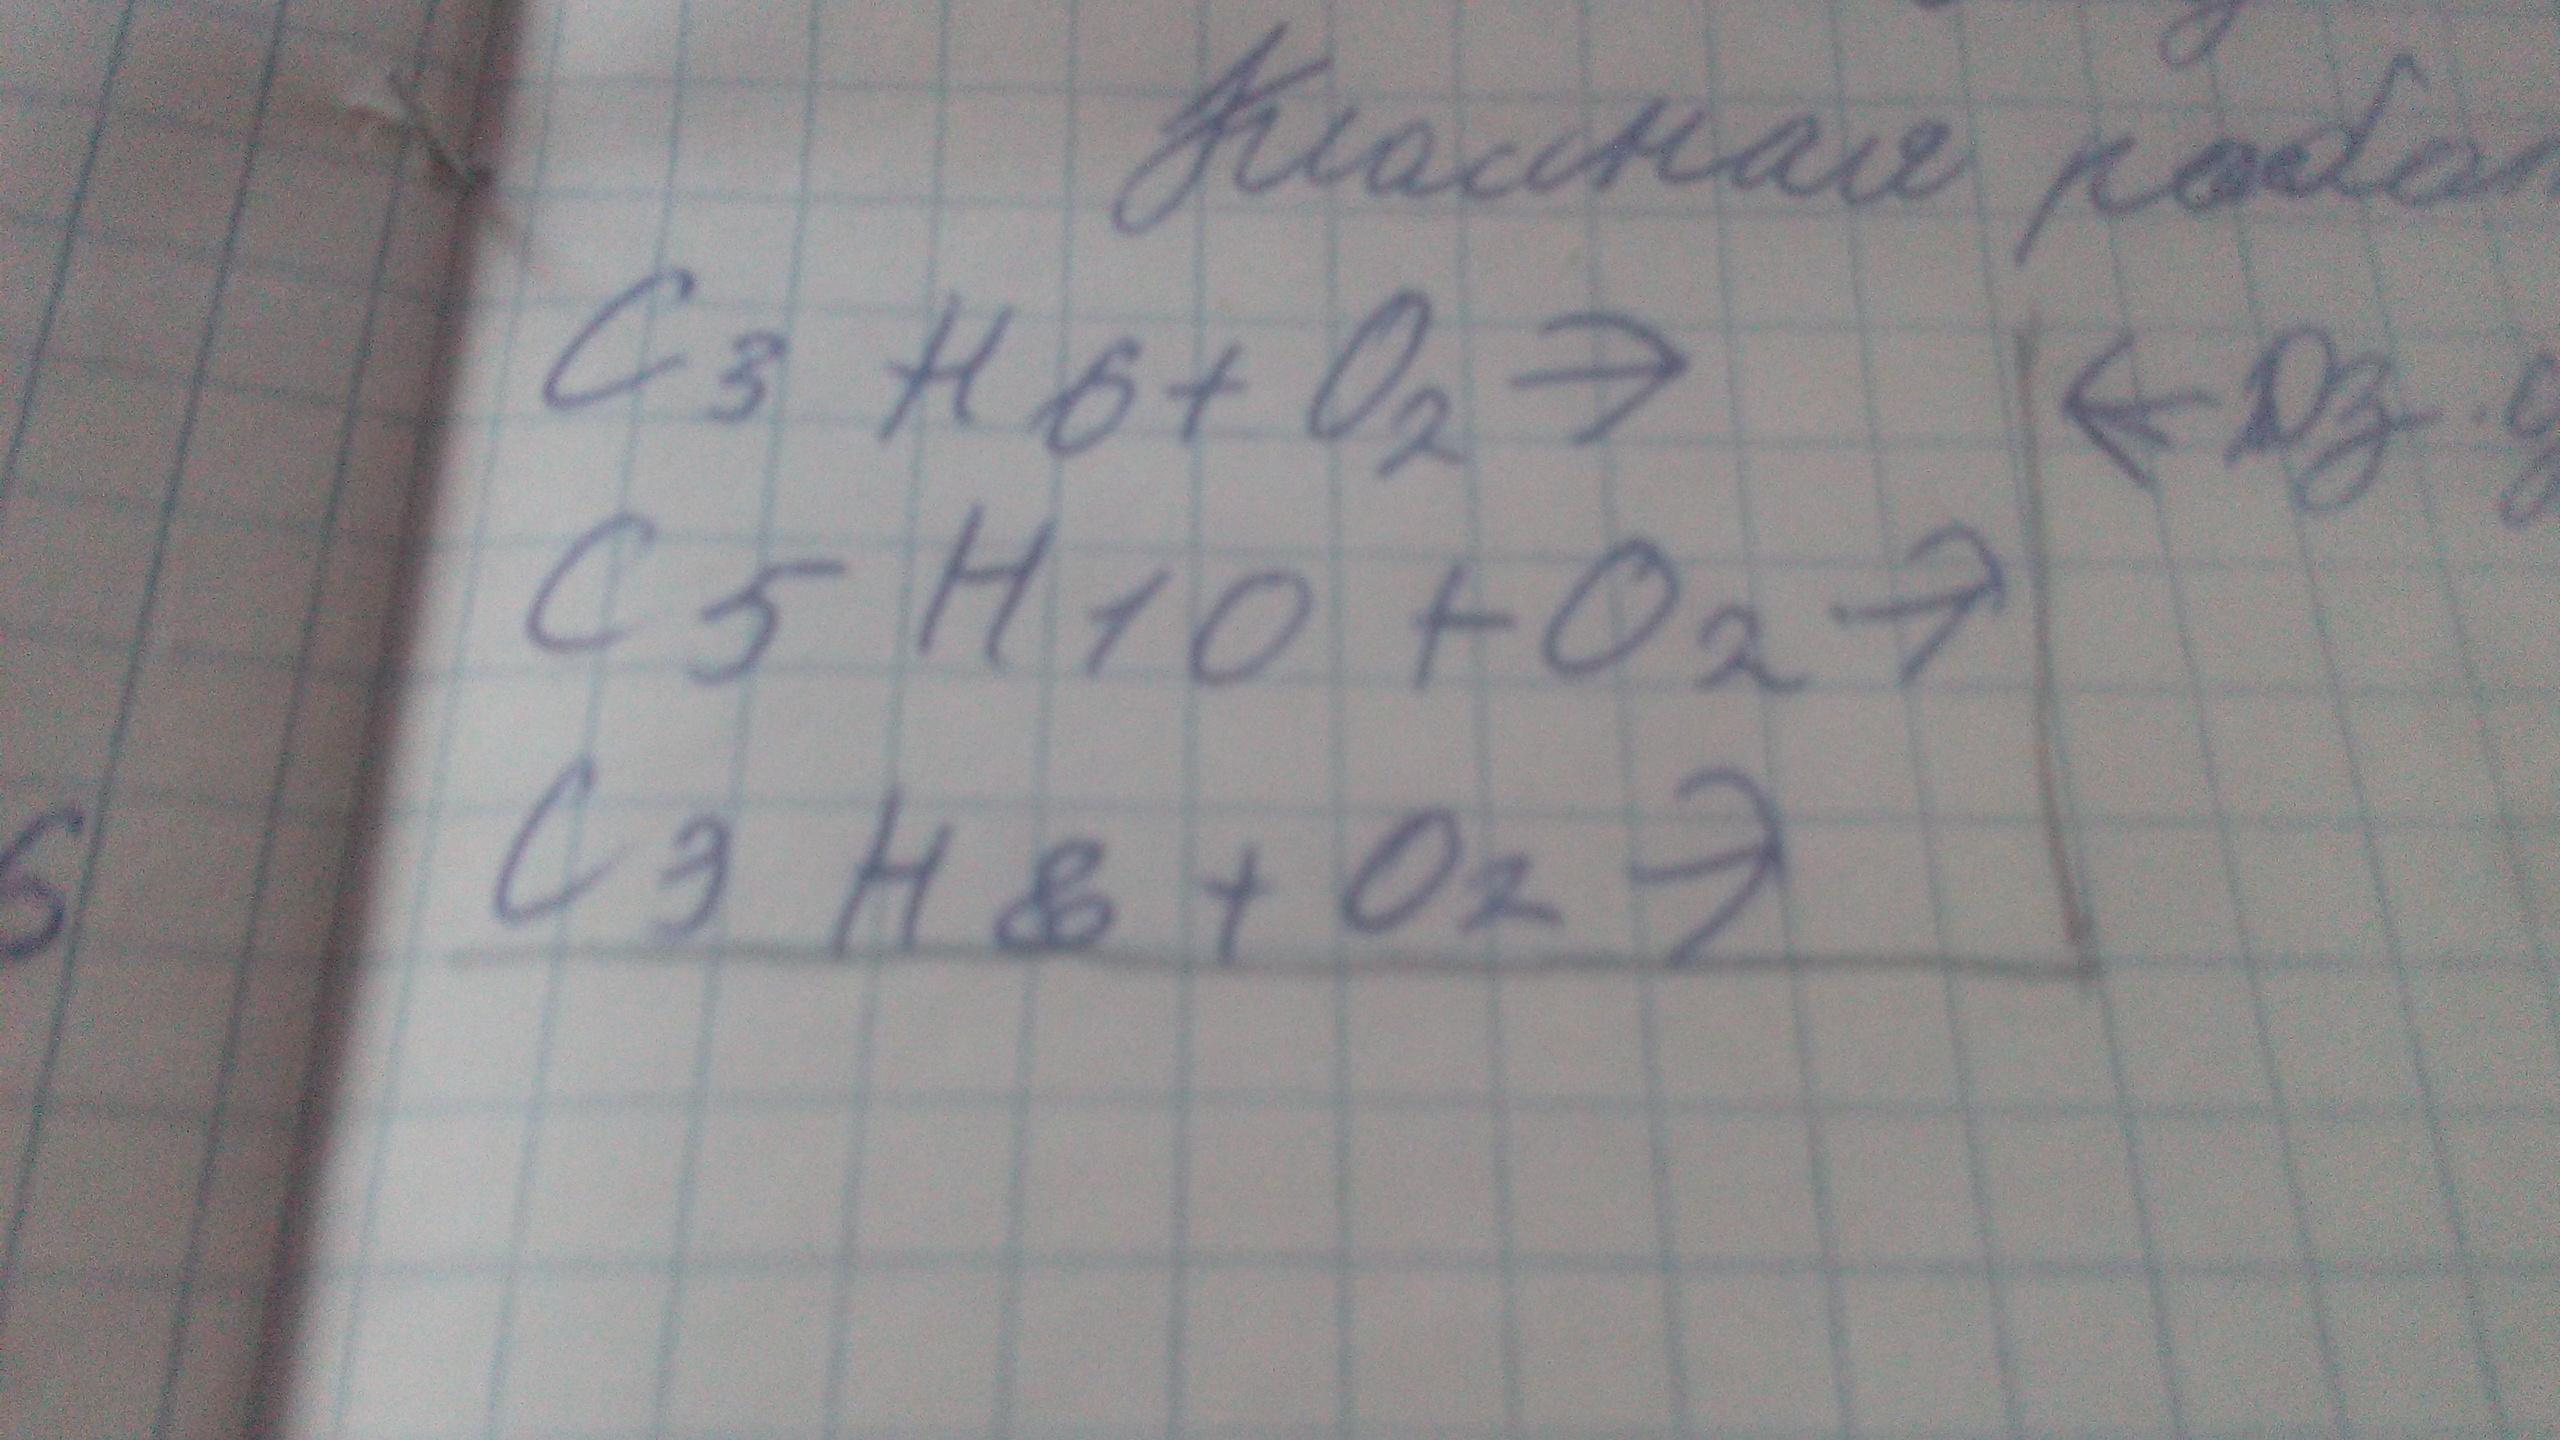 Классная
C3 H6 + O2 →
← Dз.
C5 H10 + O2 →
C3 H8 + O2 →
5